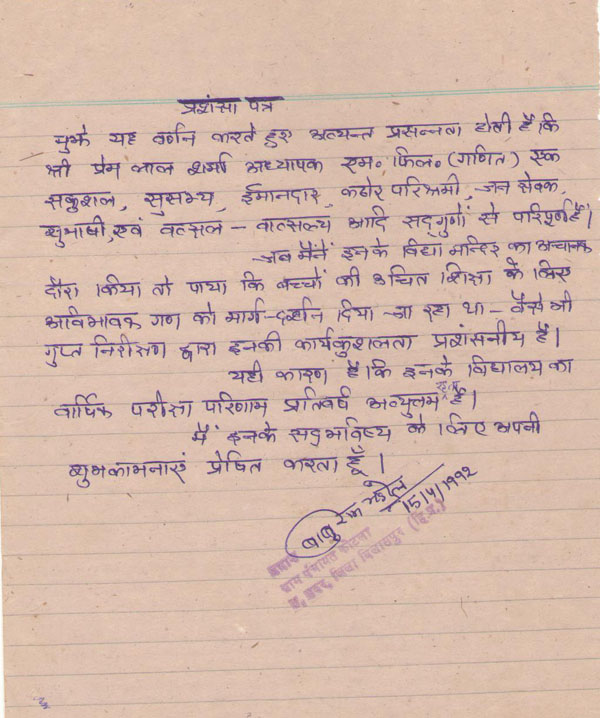 प्रशंसा पत्र
मुझे यह वर्णन करते हुए अत्यन्त प्रसन्नता होती है कि
श्री प्रेम लाल शर्मा अध्यापक एम॰ फिल॰ (गणित) एक
सकुशल, सुसभ्य, ईमानदार, कठोर परिश्रमी, जन सेवक,
सुभाषी, एवं वत्सल - वात्सल्य आदि सद्गुणों से परिपूर्ण हैं।
जब मैंने इनके विद्या मन्दिर का अचानक
दौरा किया तो पाया कि बच्चों की उचित शिक्षा के लिए
अविभावक गण को मार्ग-दर्शन दिया जा रहा था - वैसे भी
गुप्त निरीक्षण द्वारा इनकी कार्यकुशलता प्रशंसनीय है।
यही कारण है कि इनके विद्यालय का
वार्षिक परीक्षा परिणाम प्रतिवर्ष अत्युतम रहता है।
मैं इनके सद्भविष्य के लिए अपनी
शुभकामनाएं प्रेषित करता हूँ।
बाबु राम 15/4/1992
प्रधान
ग्राम पंचायत
त. सदर, जिला बिलासपुर (हि.प्र.)